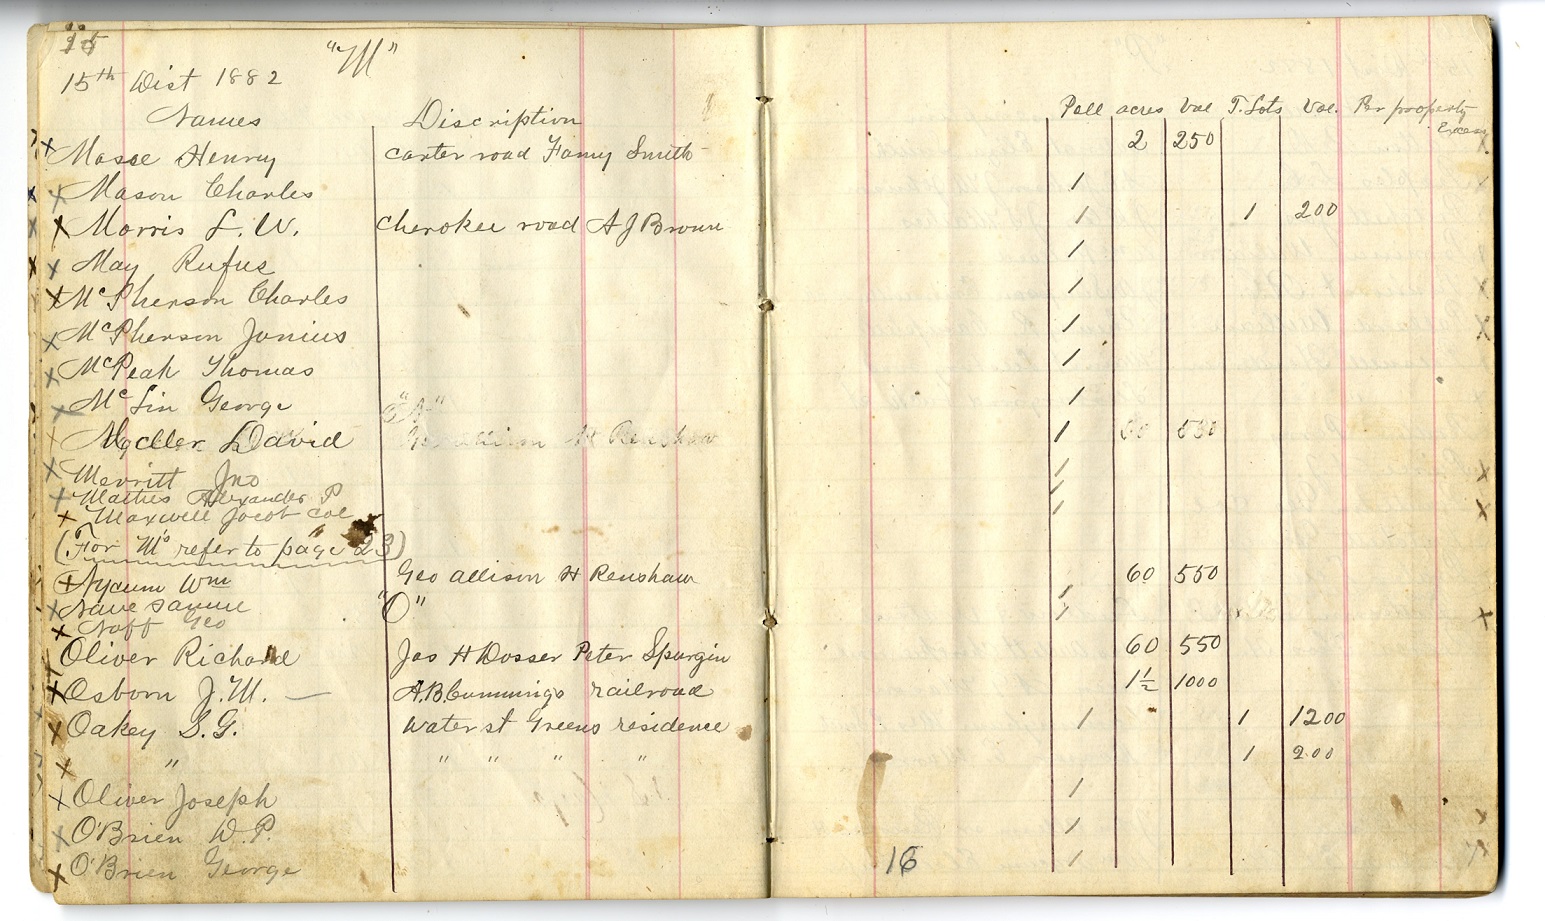 15
"M"
15th Dist 1882
Names Discription Poll acres Val T. Lots Val. Per property
Excess
Masoe Henry carter road Fanny Smith 2 250
Mason Charles 1
Morris L. W. Cherokee road A J Brown 1 1 200
May Rufus 1
McPherson Charles 1
McPherson Junius 1
McPeak Thomas 1
McLin George 1
"N"
David Renshaw 1
Merritt Jno 1
Mathes Alexander P 1
Maxwell Jacob Col 1
(For M's refer to page 23)
Nycum Wm Geo Allison H Renshaw 60 550
Nave Samue 1
"O"
Naff Geo 1
Oliver Richard Jas H Dosser Peter Spurgin 60 550
Osborn J. M. — A. B. Cummings railroad 1½ 1000
Oakey S. G. Water st Greens residence 1 1 1200
" " " " " 1 200
Oliver Joseph 1
O'Brien W. P. 1
O'Brien George 1
16